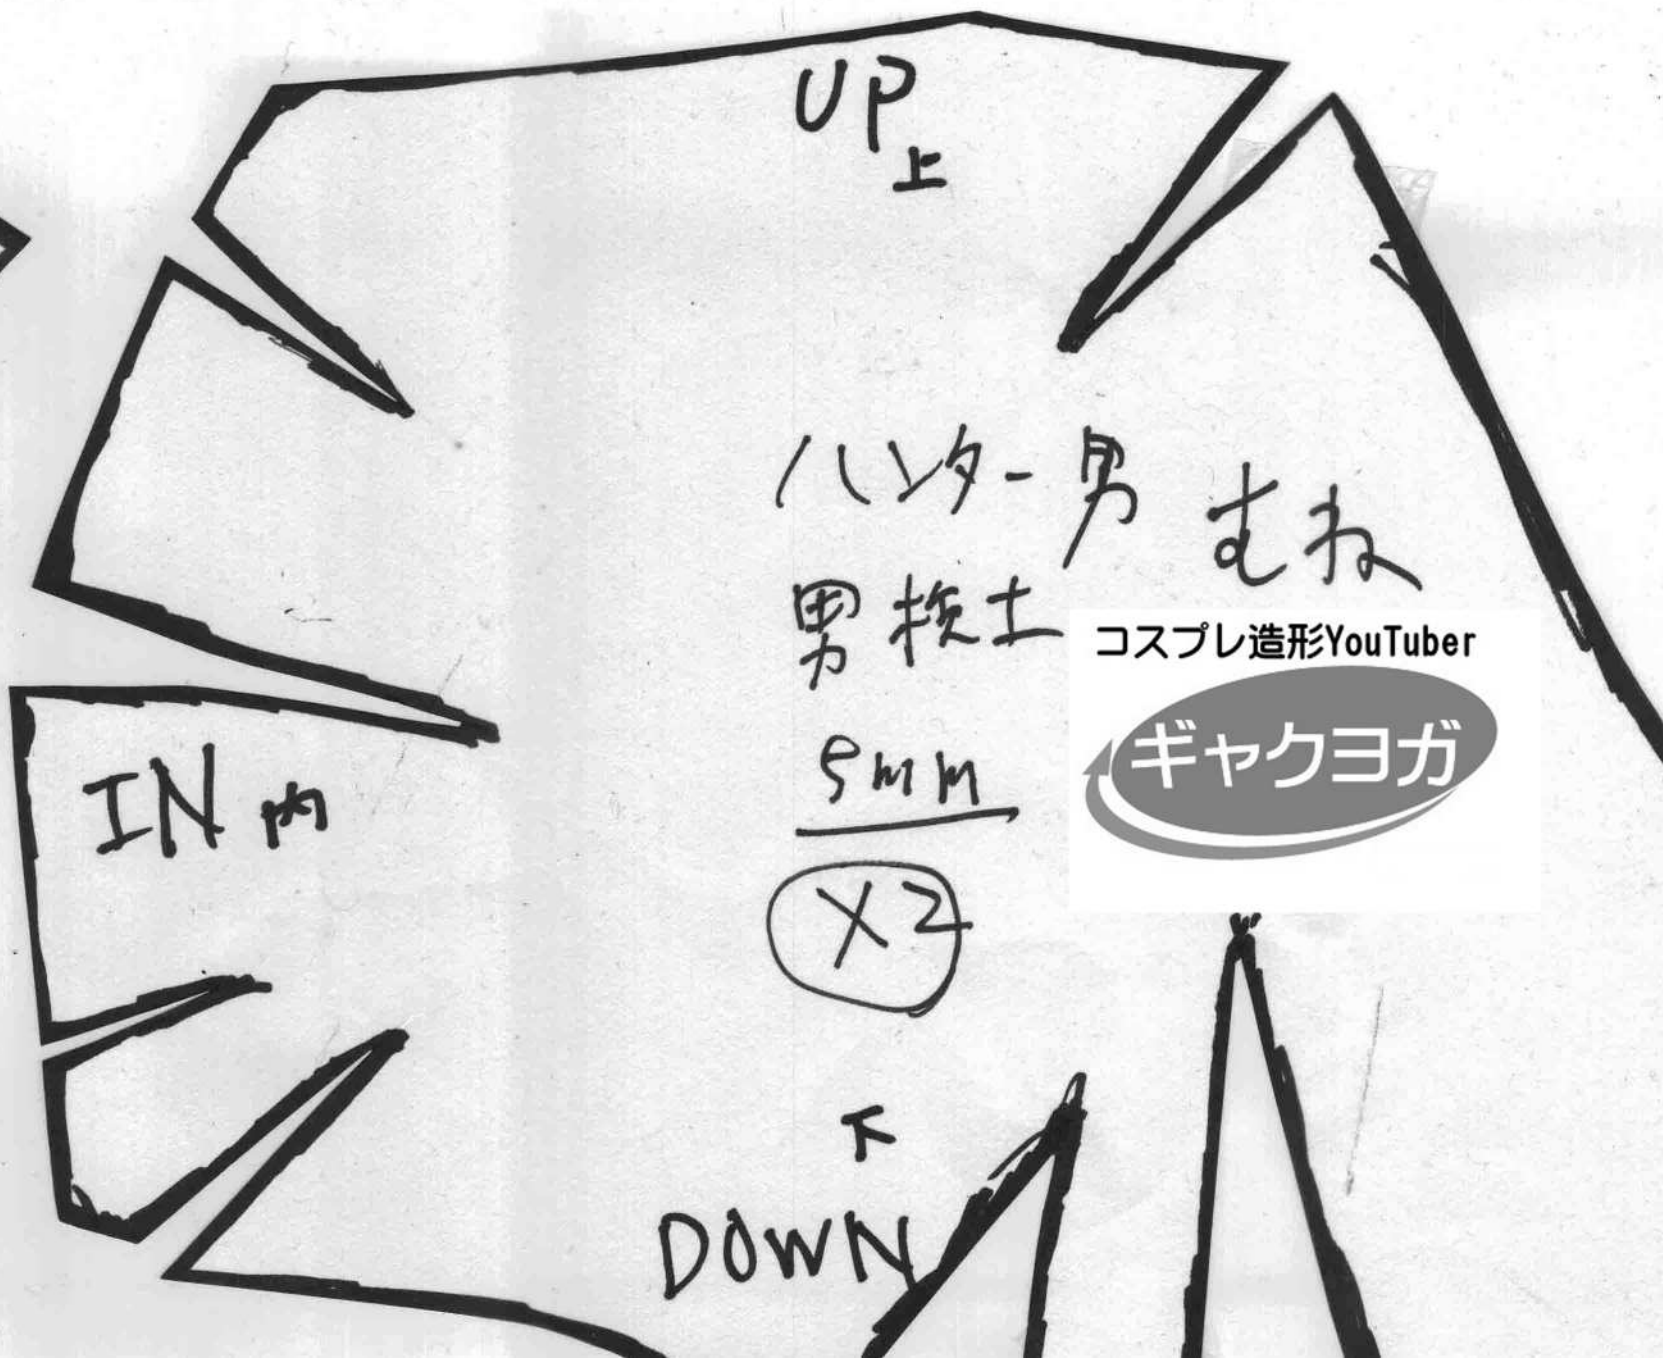 UP
上
ハンター男 むね
男検士
コスプレ造形YouTuber
ギャクヨガ
5mm
IN 内
X2
下
DOWN